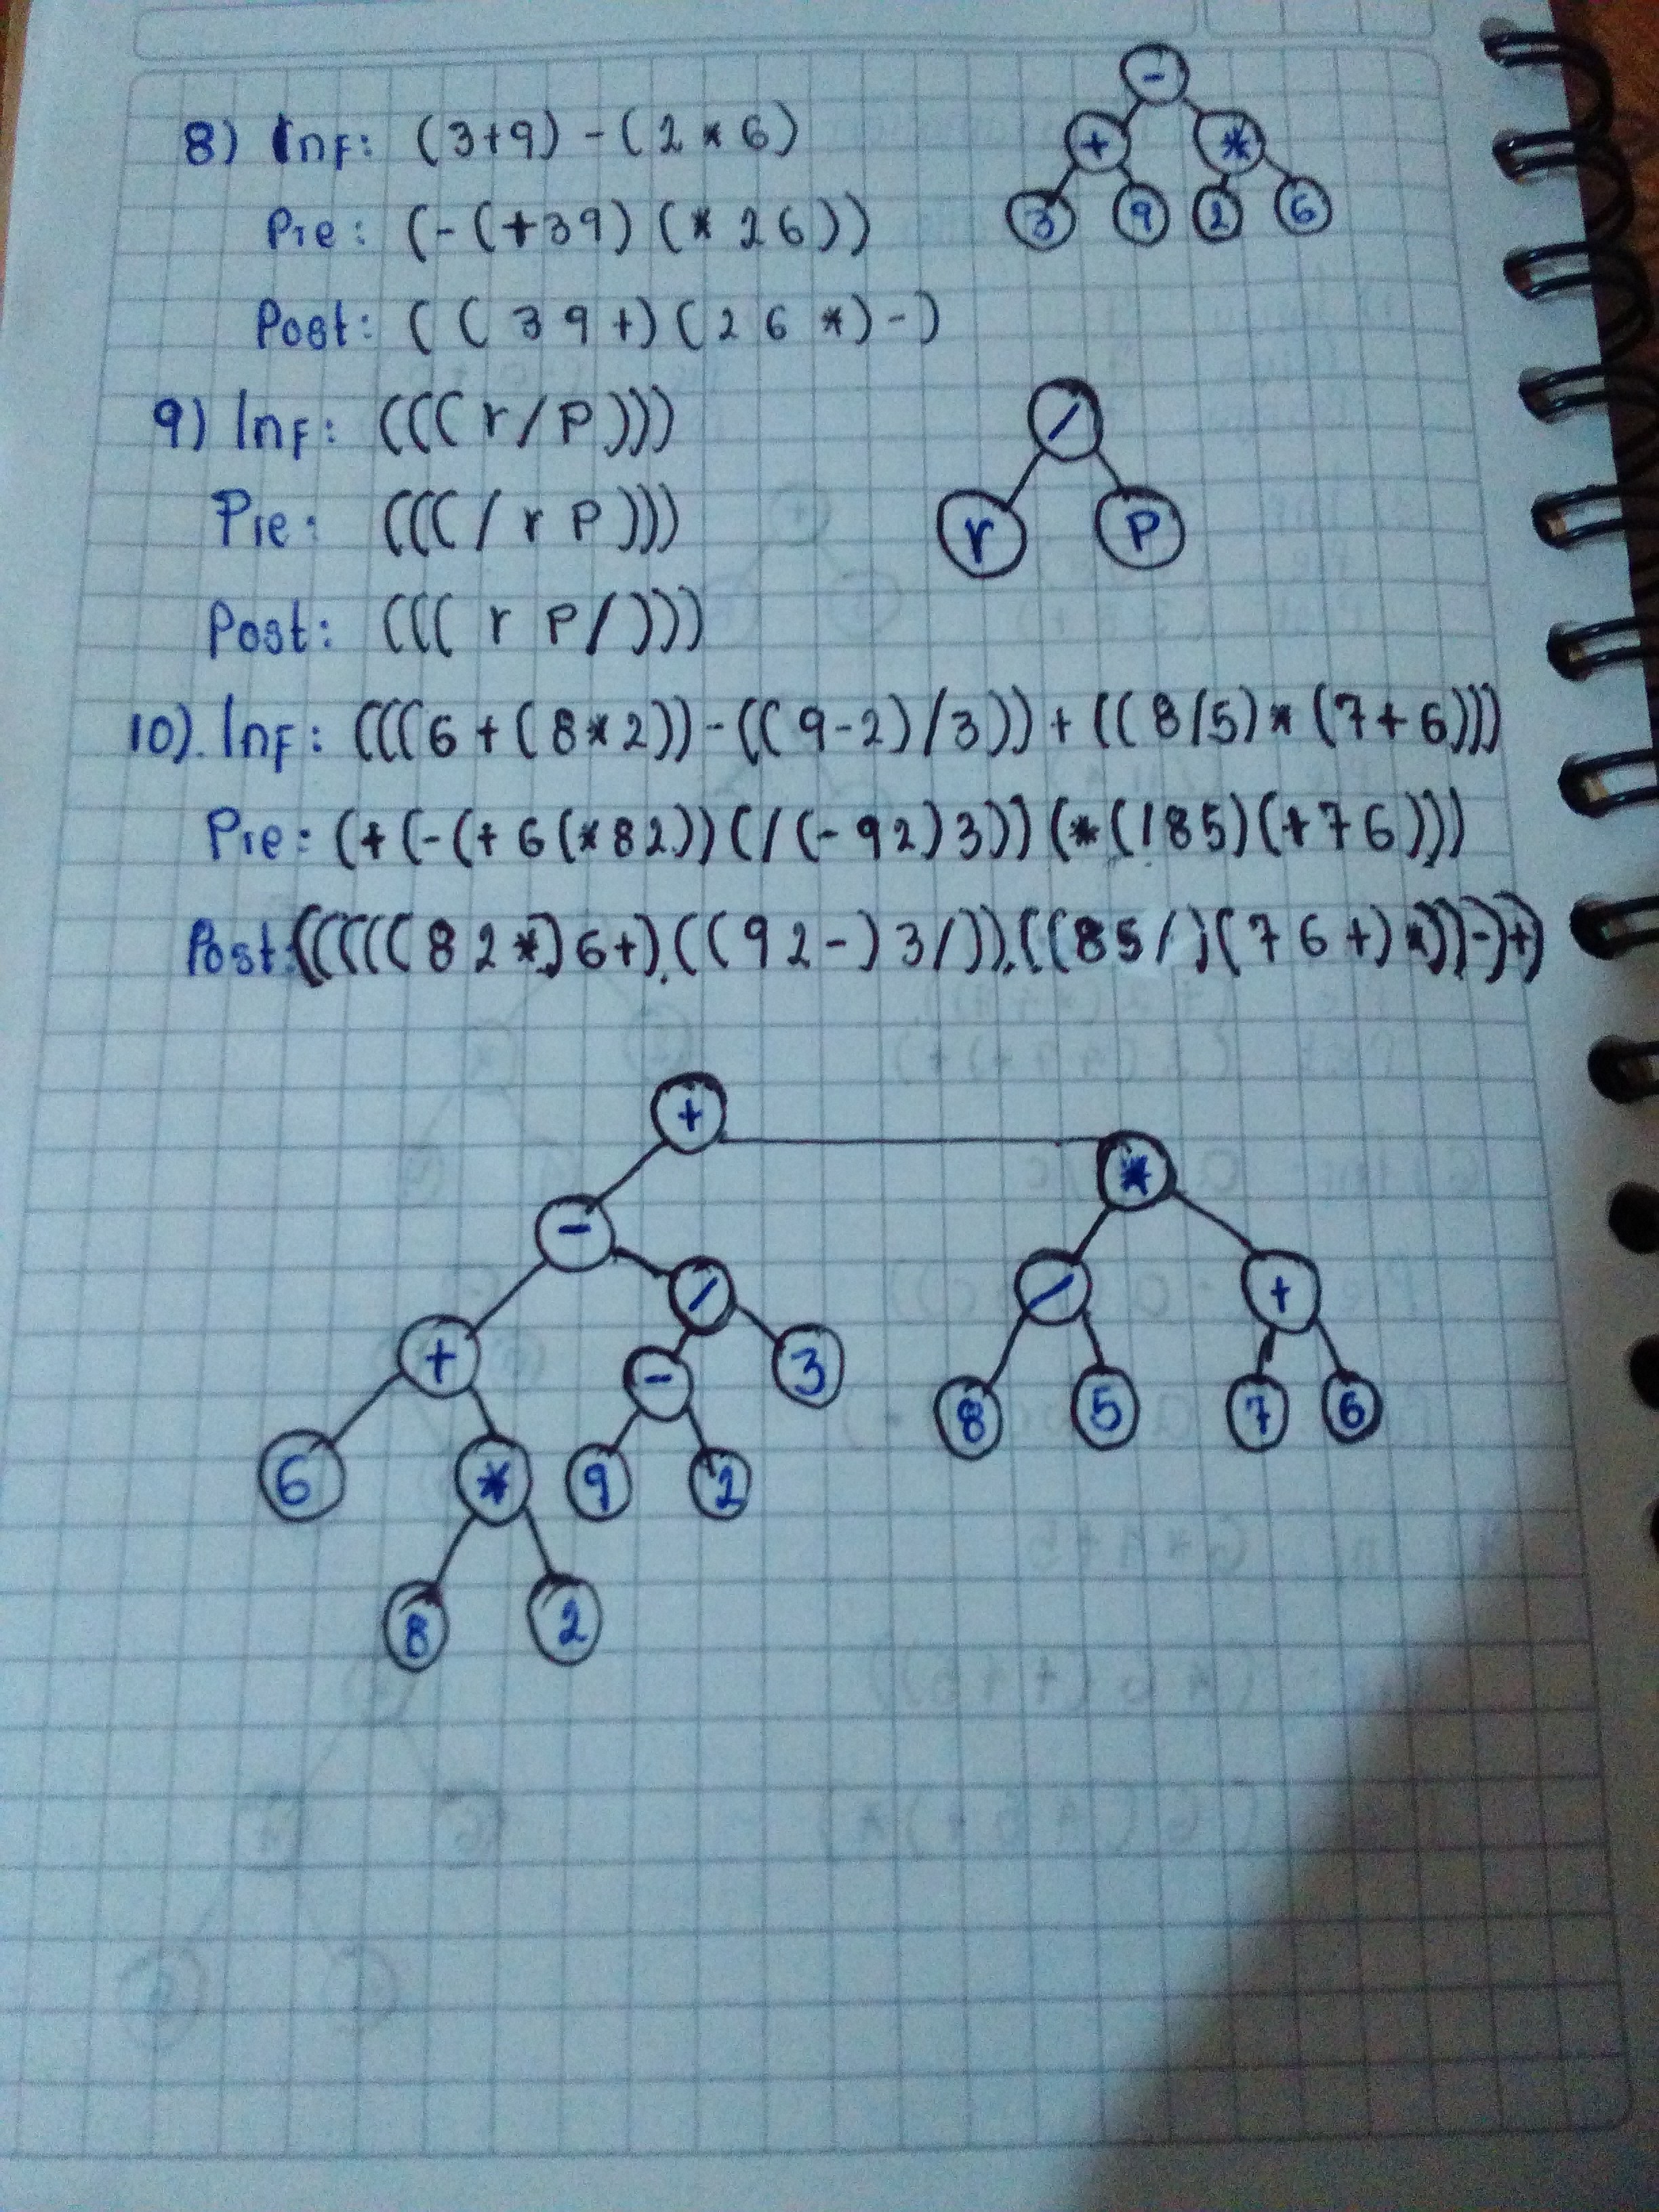 8) Inf: (3+9)-(2*6)
Pre: (-(+39)(*26))
Post: ((39+)(26*)-)
-
+ *
3 9 2 6
9) Inf: (((r/p)))
Pre: (((/rp)))
Post: (((rp/)))
/
r p
10). Inf: (((6+(8*2))-((9-2)/3))+((8/5)*(7+6)))
Pre: (+(-(+6(*82))(/(-92)3))(*(/85)(+76)))
Post: (((((82*)6+).((92-)3/)).((85/)(76+)*))-)+)
+
- *
/ / +
+ - 3 8 5 7 6
6 * 9 2
8 2